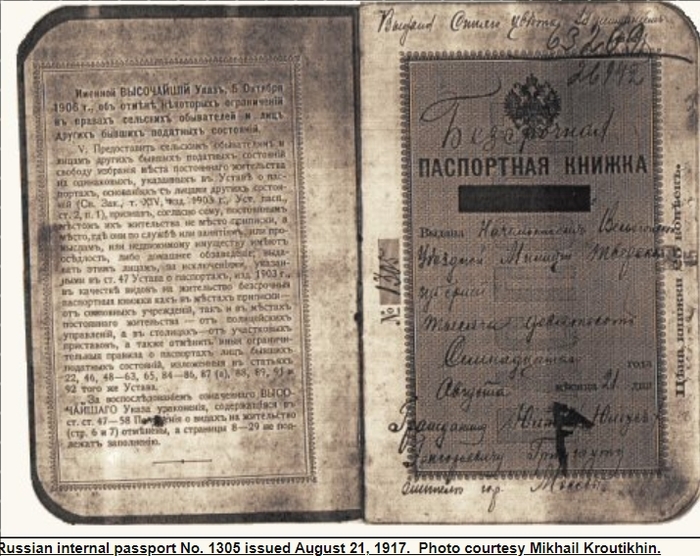 Именной ВЫСОЧАЙШІЙ Указъ, 5 Октября
1906 г., объ отмѣнѣ нѣкоторыхъ ограниченій
въ правахъ сельскихъ обывателей и лицъ
другихъ бывшихъ податныхъ состояній.
V. Предоставить сельскимъ обывателямъ и
лицамъ другихъ бывшихъ податныхъ состояній
свободу избранія мѣста постояннаго жительства
на одинаковыхъ, указанныхъ въ Уставѣ о пас-
портахъ, основаніяхъ съ лицами другихъ состоя-
ній (Св. Зак., т. XIV, изд. 1903 г., Уст. пасп.,
ст. 2, п. 1), признавъ, согласно сему, постояннымъ
мѣстомъ ихъ жительства не мѣсто приписки, а
мѣсто, гдѣ они по службѣ или занятіямъ, или про-
мысламъ, или недвижимому имуществу имѣютъ
осѣдлость, либо домашнее обзаведеніе; выда-
вать этимъ лицамъ, за исключеніемъ, указан-
нымъ въ ст. 47 Устава о паспортахъ, изд. 1903 г.,
въ качествѣ видовъ на жительство безсрочныя
паспортныя книжки какъ въ мѣстахъ приписки—
отъ сословныхъ учрежденій, такъ и въ мѣстахъ
постояннаго жительства — отъ полицейскихъ
управленій, а въ столицахъ—отъ участковыхъ
приставовъ, а также отмѣнить иныя ограничи-
тельныя правила о паспортахъ лицъ бывшихъ
податныхъ состояній, изложенныя въ статьяхъ
22, 46, 48—63, 65, 84—86, 87 88, 89, 91 и
92 того же Устава.
За воспослѣдованіемъ означеннаго ВЫСО-
ЧАЙШАГО Указа узаконенія, содержащіяся въ
ст. ст. 47—58 о видахъ на жительство
(стр. 6 и 7) отмѣнены, а страницы 8—29 не под-
лежатъ заполненію.
Выдана
63269
26942
Безсрочная
ПАСПОРТНАЯ КНИЖКА
Выдана Начальникомъ
Уѣздной Милиціи
губерніи
№ 1305
тысяча девятьсотъ
Семнадцатаго года
Августа мѣсяца 21 дня
Гражданину
гор. Москвы
Цѣна книжки 15 копѣекъ.
Russian internal passport No. 1305 issued August 21, 1917. Photo courtesy Mikhail Kroutikhin.